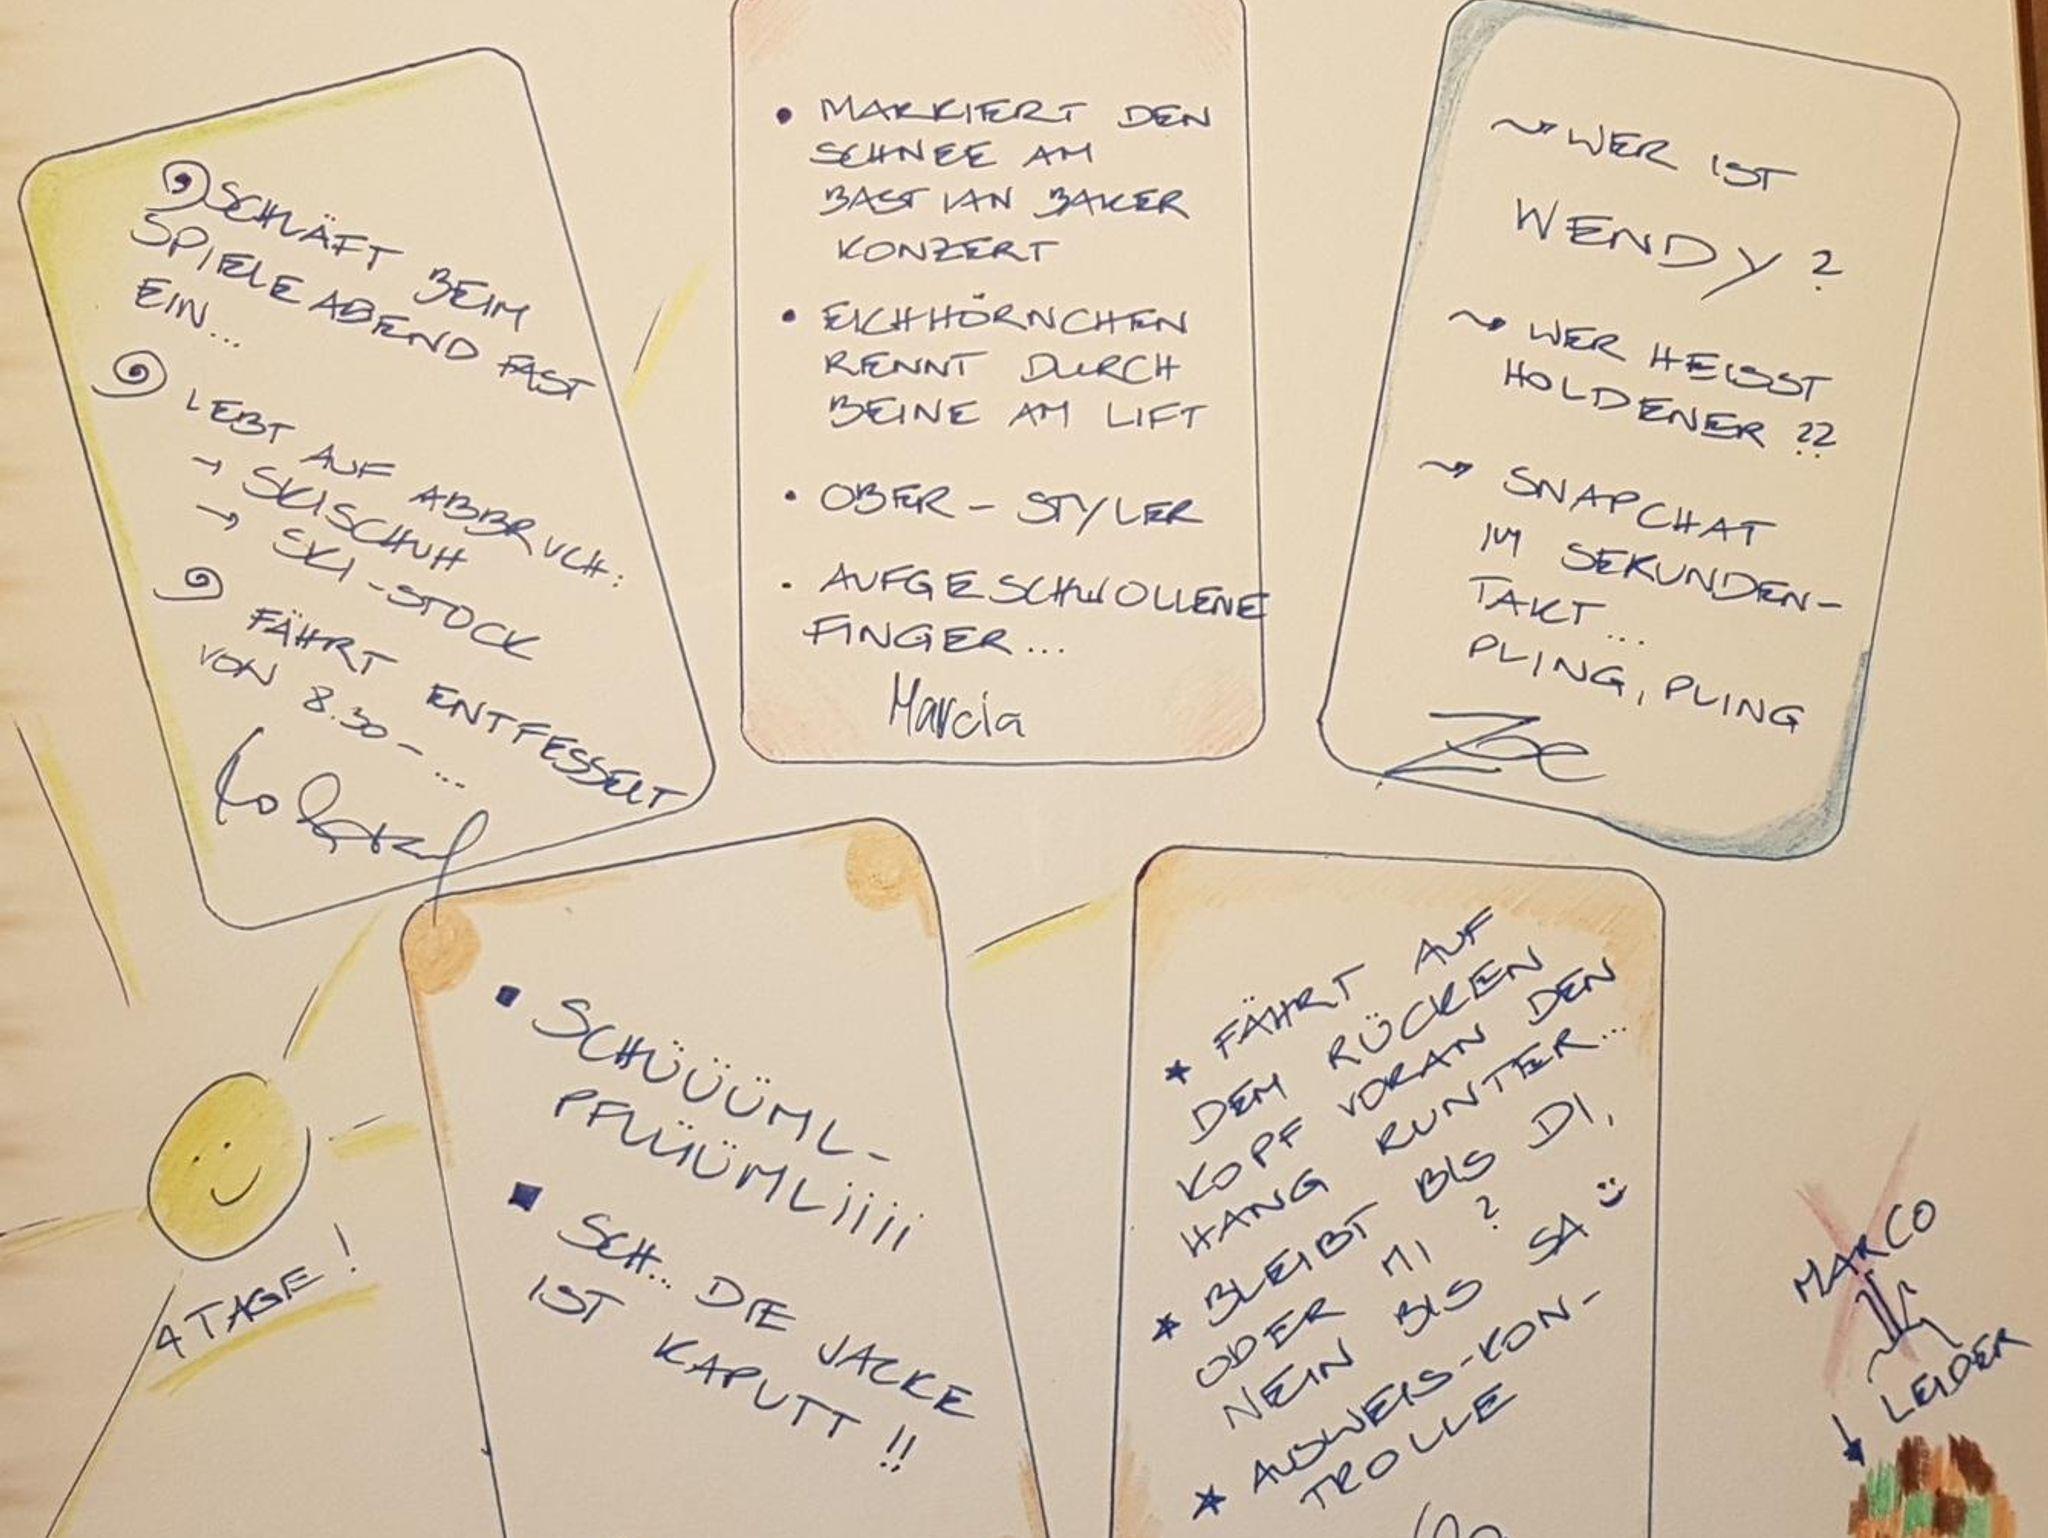 SCHLÄFT BEIM
SPIELEABEND FAST
EIN...
LEBT AUF ABBRUCH:
→ SKISCHUH
→ SKI-STOCK
FÄHRT ENTFESSELT
VON 8.30 - ...
• MARKIERT DEN
SCHNEE AM
BASTIAN BAKER
KONZERT
• EICHHÖRNCHEN
RENNT DURCH
BEINE AM LIFT
• OBER-STYLER
• AUFGESCHWOLLENE
FINGER...
Marcia
WER IST
WENDY?
WER HEISST
HOLDENER??
SNAPCHAT
IM SEKUNDEN-
TAKT...
PLING, PLING
Zoe
▪ SCHÜÜÜML-
PFLÜÜMLiiii
▪ SCH... DIE JACKE
IST KAPUTT!!
★ FÄHRT AUF
DEM RÜCKEN
KOPF VORAN DEN
HANG RUNTER...
★ BLEIBT BIS DI,
ODER MI?
NEIN BIS SA
★ AUSWEIS-KON-
TROLLE
4 TAGE!
MARCO
LEIDER